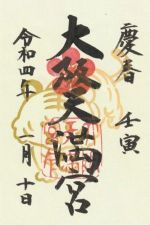 慶春 壬寅
大阪天満宮
令和四年 一月十日